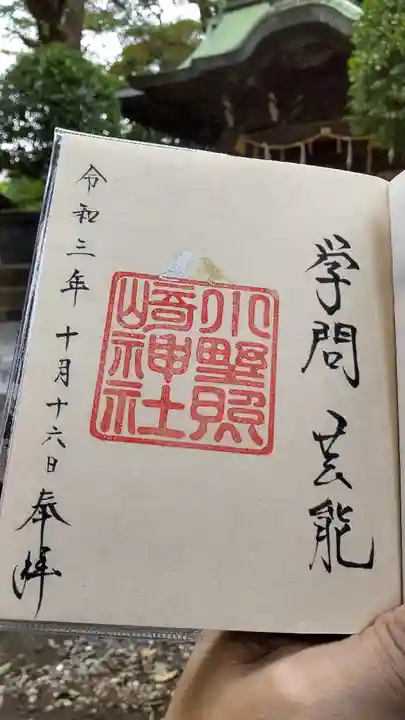 学問 芸能
小野照
崎神社
令和三年 十月十六日 奉拝